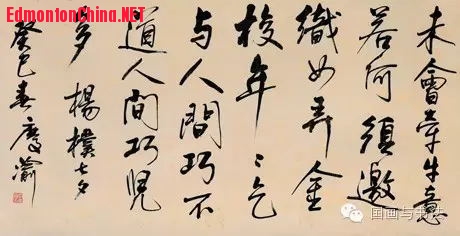 EdmontonChina.NET
未會牽牛意
若何須邀
織女弄金
梭年〻乞
与人間巧不
道人間巧已
多 楊樸七夕
癸巳春慶渝
国画与书法